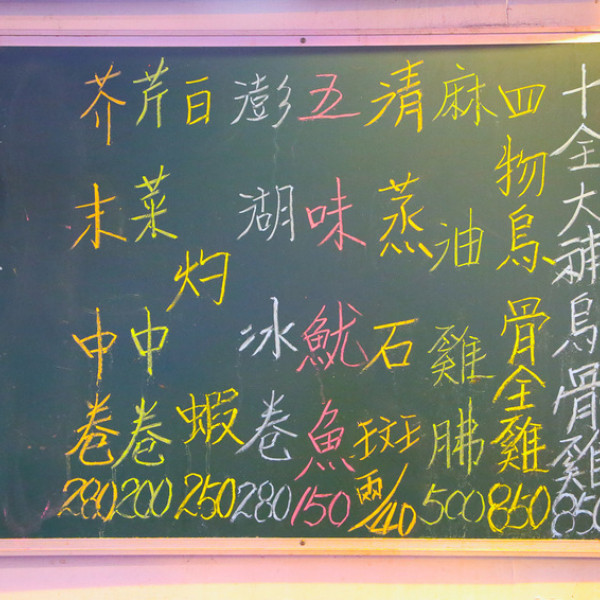 十全大補烏骨雞850
四物烏骨全雞850
麻油雞胇500
清蒸石斑兩/40
五味魷魚150
澎湖冰卷280
白灼蝦250
芹菜中卷200
芥末中卷280